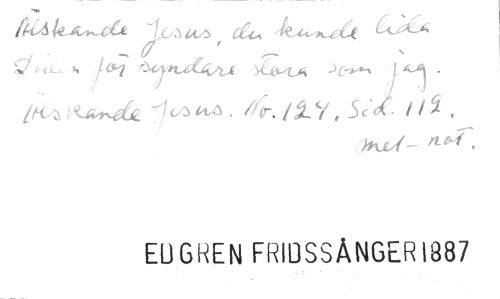 Älskande Jesus, du kunde lida
Döden för syndare stora som jag.
Älskande Jesus. No. 124. Sid. 112.
mel-not.
EDGREN FRIDSSÅNGER 1887